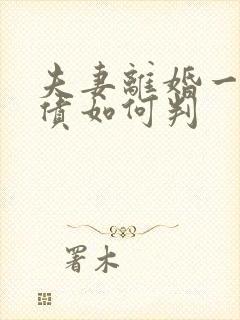 夫妻離婚一
債如何判
署木